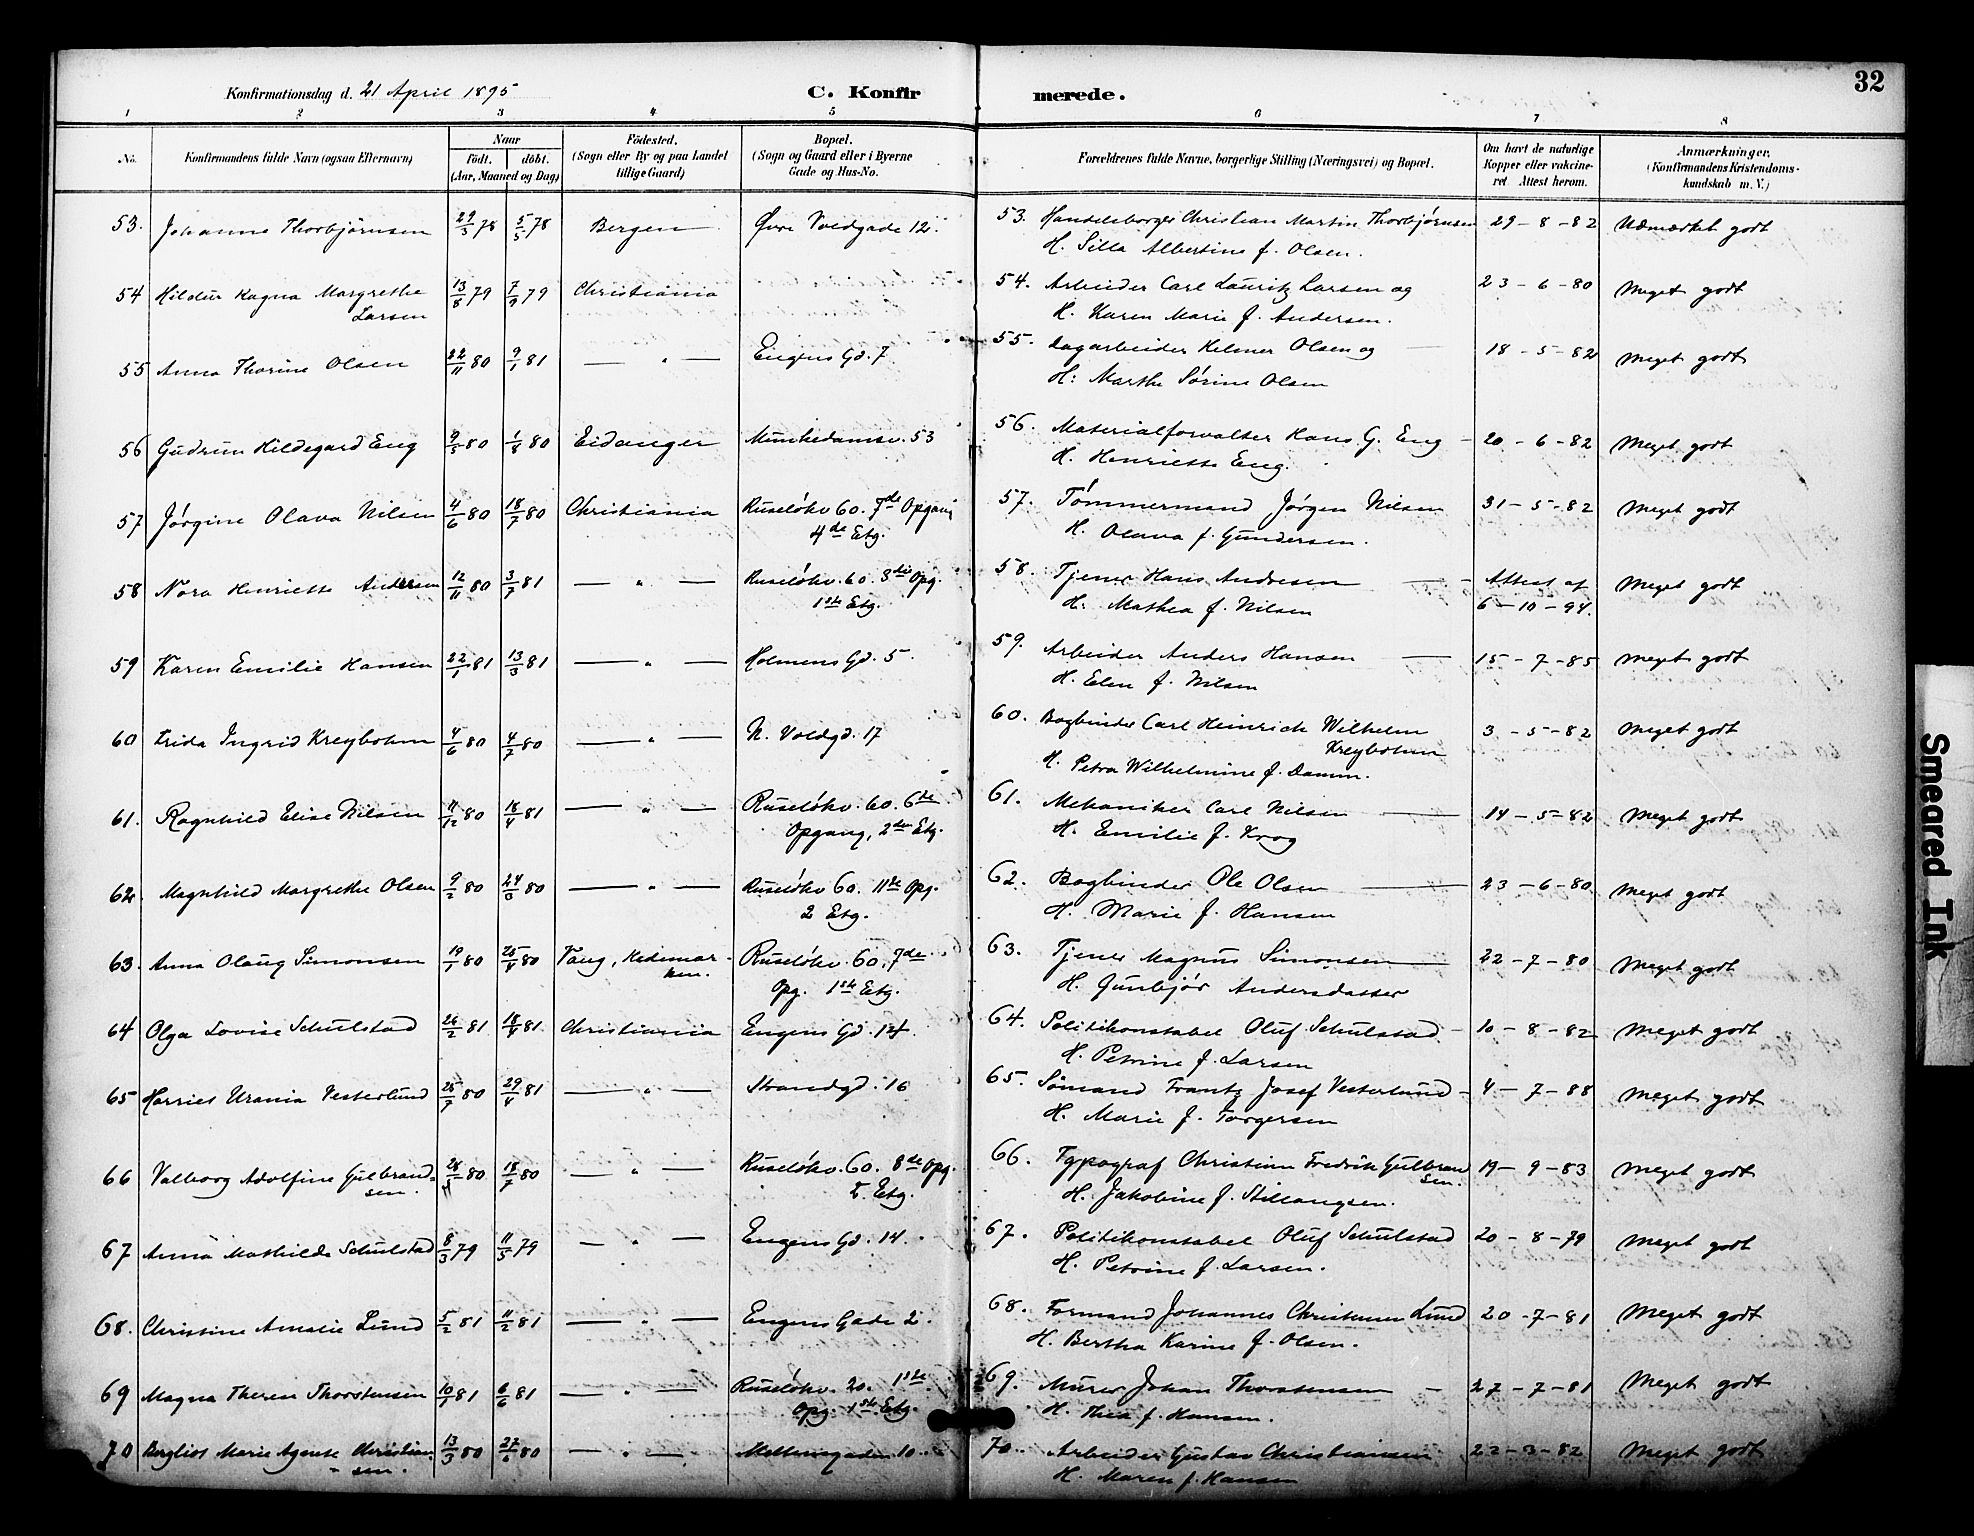 32
Konfirmationsdag d. 21 April 1895
C. Konfirmerede.
1 2 3 4 5 6 7 8
No.
Konfirmandens fulde Navn (ogsaa Efternavn)
Naar
födt. döbt.
(Aar, Maaned og Dag)
Födested.
(Sogn eller By og paa Landet
tillige Gaard)
Bopæl.
(Sogn og Gaard eller i Byerne
Gade og Hus-No.
Forældrenes fulde Navne, borgerlige Stilling (Næringsvei) og Bopæl.
Om havt de naturlige
Kopper eller vakcine-
ret. Attest herom.
Anmærkninger.
(Konfirmandens Kristendoms-
kundskab m. V.)
53. Johanne Thorbjörnsen 29/3 78 5/5 78 Bergen Øvre Voldgade 12. 53. Handelsborger Christian Martin Thorbjørnsen 29-8-82 Udmærket godt
H. Silla Albertine f. Olsen.
54 Hildur Ragna Margrethe 13/8 79 7/9 79 Christiania 54. Arbeider Carl Lauritz Larsen og 23-6-80 Meget godt
Larsen H. Karen Marie f. Andersen.
55 Anna Thorine Olsen 22/11 80 9/1 81 — " — Engens Gd. 7 55. Dagarbeider Helmer Olsen og 18-5-82 Meget godt
H: Marthe Sørine Olsen
56 Gudrun Hildegard Eng 9/5 80 1/8 80 Eidanger Munkedamsv. 53 56. Materialforvalter Hans G. Eng 20-6-82 Meget godt
H. Henriette Eng.
57 Jørgine Olava Nilsen 4/6 80 18/7 80 Christiania Ruseløkv 60. 7de Opgang 57. Tømmermand Jørgen Nilsen 31-5-82 Meget godt
4de Etg. H. Olava f. Gundersen.
58 Nora Henriette Andersen 12/11 80 3/7 81 — " — Ruseløkv. 60. 3die Opg. 58. Tjener Hans Andresen Attest af Meget godt
1ste Etg. H. Mathea f. Nilsen 6-10-94.
59 Karen Emilie Hansen 22/1 81 13/3 81 — " — Holmens Gd. 5 59. Arbeider Anders Hansen 15-7-85 Meget godt
H. Elen f. Nilsen
60 Frida Ingrid Kreybohm 4/6 80 4/7 80 — " — N. Voldgd. 17 60. Bogbinder Carl Heinrich Wilhelm 3-5-82 Meget godt
Kreybohm
H. Petra Wilhelmine f. Damm.
61. Ragnhild Elise Nilsen 11/12 80 18/4 81 — " — Ruseløkv. 60. 6te 61. Mekaniker Carl Nilsen 14-5-82 Meget godt
Opgang, 2den Etg. H. Emilie f. Krog
62. Magnhild Margrethe Olsen 9/2 80 80 — " — Ruseløkv 60. 11te Opg. 62. Bogbinder Ole Olsen 23-6-80 Meget godt
2 Etg. H. Marie f. Hansen
63. Anna Olaug Simonsen 19/1 80 25/4 80 Vang, Hedemar- Ruseløkv. 60. 7de 63. Tjener Magnus Simonsen 22-7-80 Meget godt
ken. Opg. 1ste Etg. H. Gunbjør Andersdatter
64 Olga Lovise Schulstad 26/2 81 18/4 81. Christiania Engens Gd. 14. 64. Politikonstabel Oluf Schulstad 10-8-82 Meget godt
H. Petrine f. Larsen
65 Harriet Urania Vesterlund 25/7 80 29/4 81 — " — Strandgd. 16 65. Sømand Frantz Josef Vesterlund 4-7-88 Meget godt
H. Marie f. Torgersen
66 Valborg Adolfine Gulbrand- 28/5 80 18/7 80 — " — Ruseløkv. 60. 8de Opg. 66. Typograf Christian Fredrik Gulbrand 19-9-83 Meget godt
sen. Etg. sen.
H. Jakobine f.
67 Anna Mathilde Schulstad 8/3 79 11/5 79 — " — Engens Gd. 14. 67. Politikonstabel Oluf Schulstad 20-8-79 Meget godt
H. Petrine f. Larsen.
68. Christine Amalie Lund 5/2 81 11/2 81 — " — Engens Gade 2. 68. Formand Johannes Christensen Lund 20-7-81 Meget godt
H. Bertha Karine f. Olsen.
69 Magna Therese Thorstensen 10/1 81 6/6 81 — " — Ruseløkv. 20. 1ste 69. Murer Johan Thorstensen 27-7-81 Meget godt
Opg. 1ste Etg. H. Thea f. Hansen.
70 Bergliot Marie Agente Christian- 13/3 80 80 — " — 10 70. Arbeider Gustav Christiansen 22-3-82 Meget godt
sen. H. Maren f. Hansen
Smeared Ink